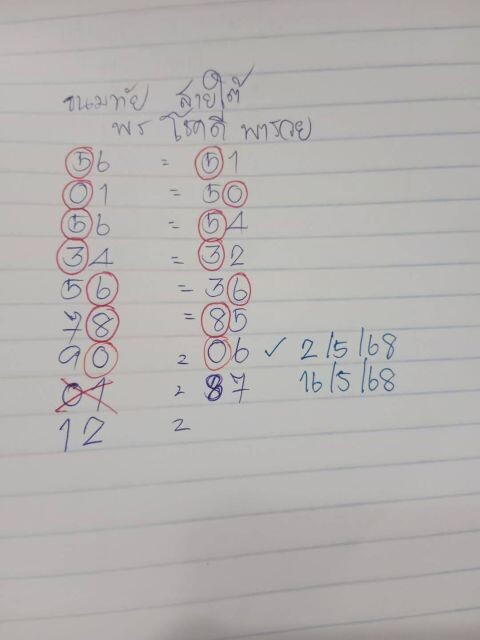 ขนมทัย สายใต้
พร โชคดี พารวย
56 = 51
01 = 50
56 = 54
34 = 32
56 = 36
78 = 85
90 = 06 ✓ 2/5/68
01 = 87 16/5/68
12 =